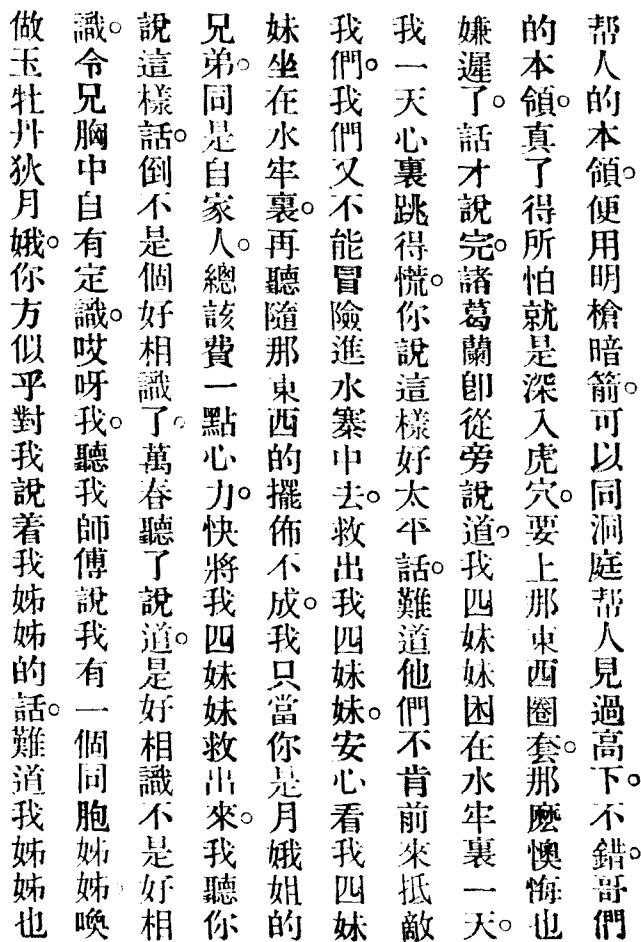 帮人的本領。便用明槍暗箭。可以同洞庭帮人見過高下。不錯。哥們
的本領。真了得所怕就是深入虎穴。要上那東西圈套。那麽懊悔也
嫌遲了。話才說完。諸葛蘭卽從旁說道。我四妹妹困在水牢裏一天。
我一天心裏跳得慌。你說這樣好太平話。難道他們不肯前來抵敵
我們。我們又不能冒險進水寨中去。救出我四妹妹。安心看我四妹
妹坐在水牢裏。再聽隨那東西的擺佈不成。我只當你是月娥姐的
兄弟。同是自家人。總該費一點心力。快將我四妹妹救出來。我聽你
說這樣話。倒不是個好相識了。萬春聽了說道。是好相識不是好相
識。令兄胸中自有定識。哎呀我。聽我師傅說我有一個同胞姊姊喚
做玉牡丹狄月娥。你方似乎對我說着我姊姊的話。難道我姊姊也